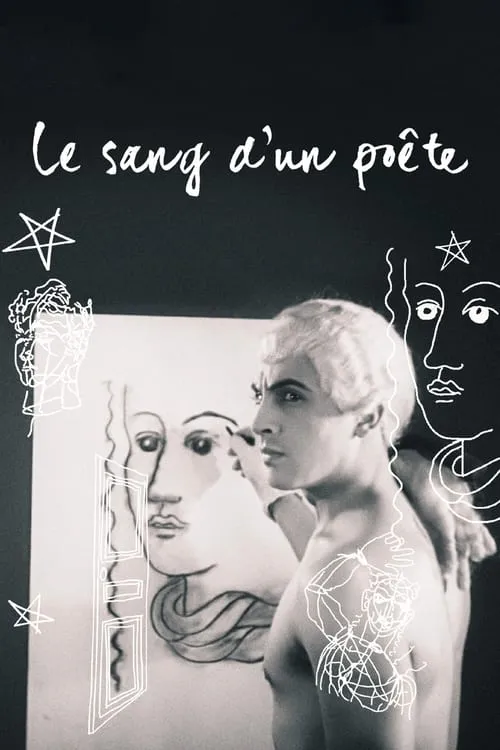 Le sang d'un poête